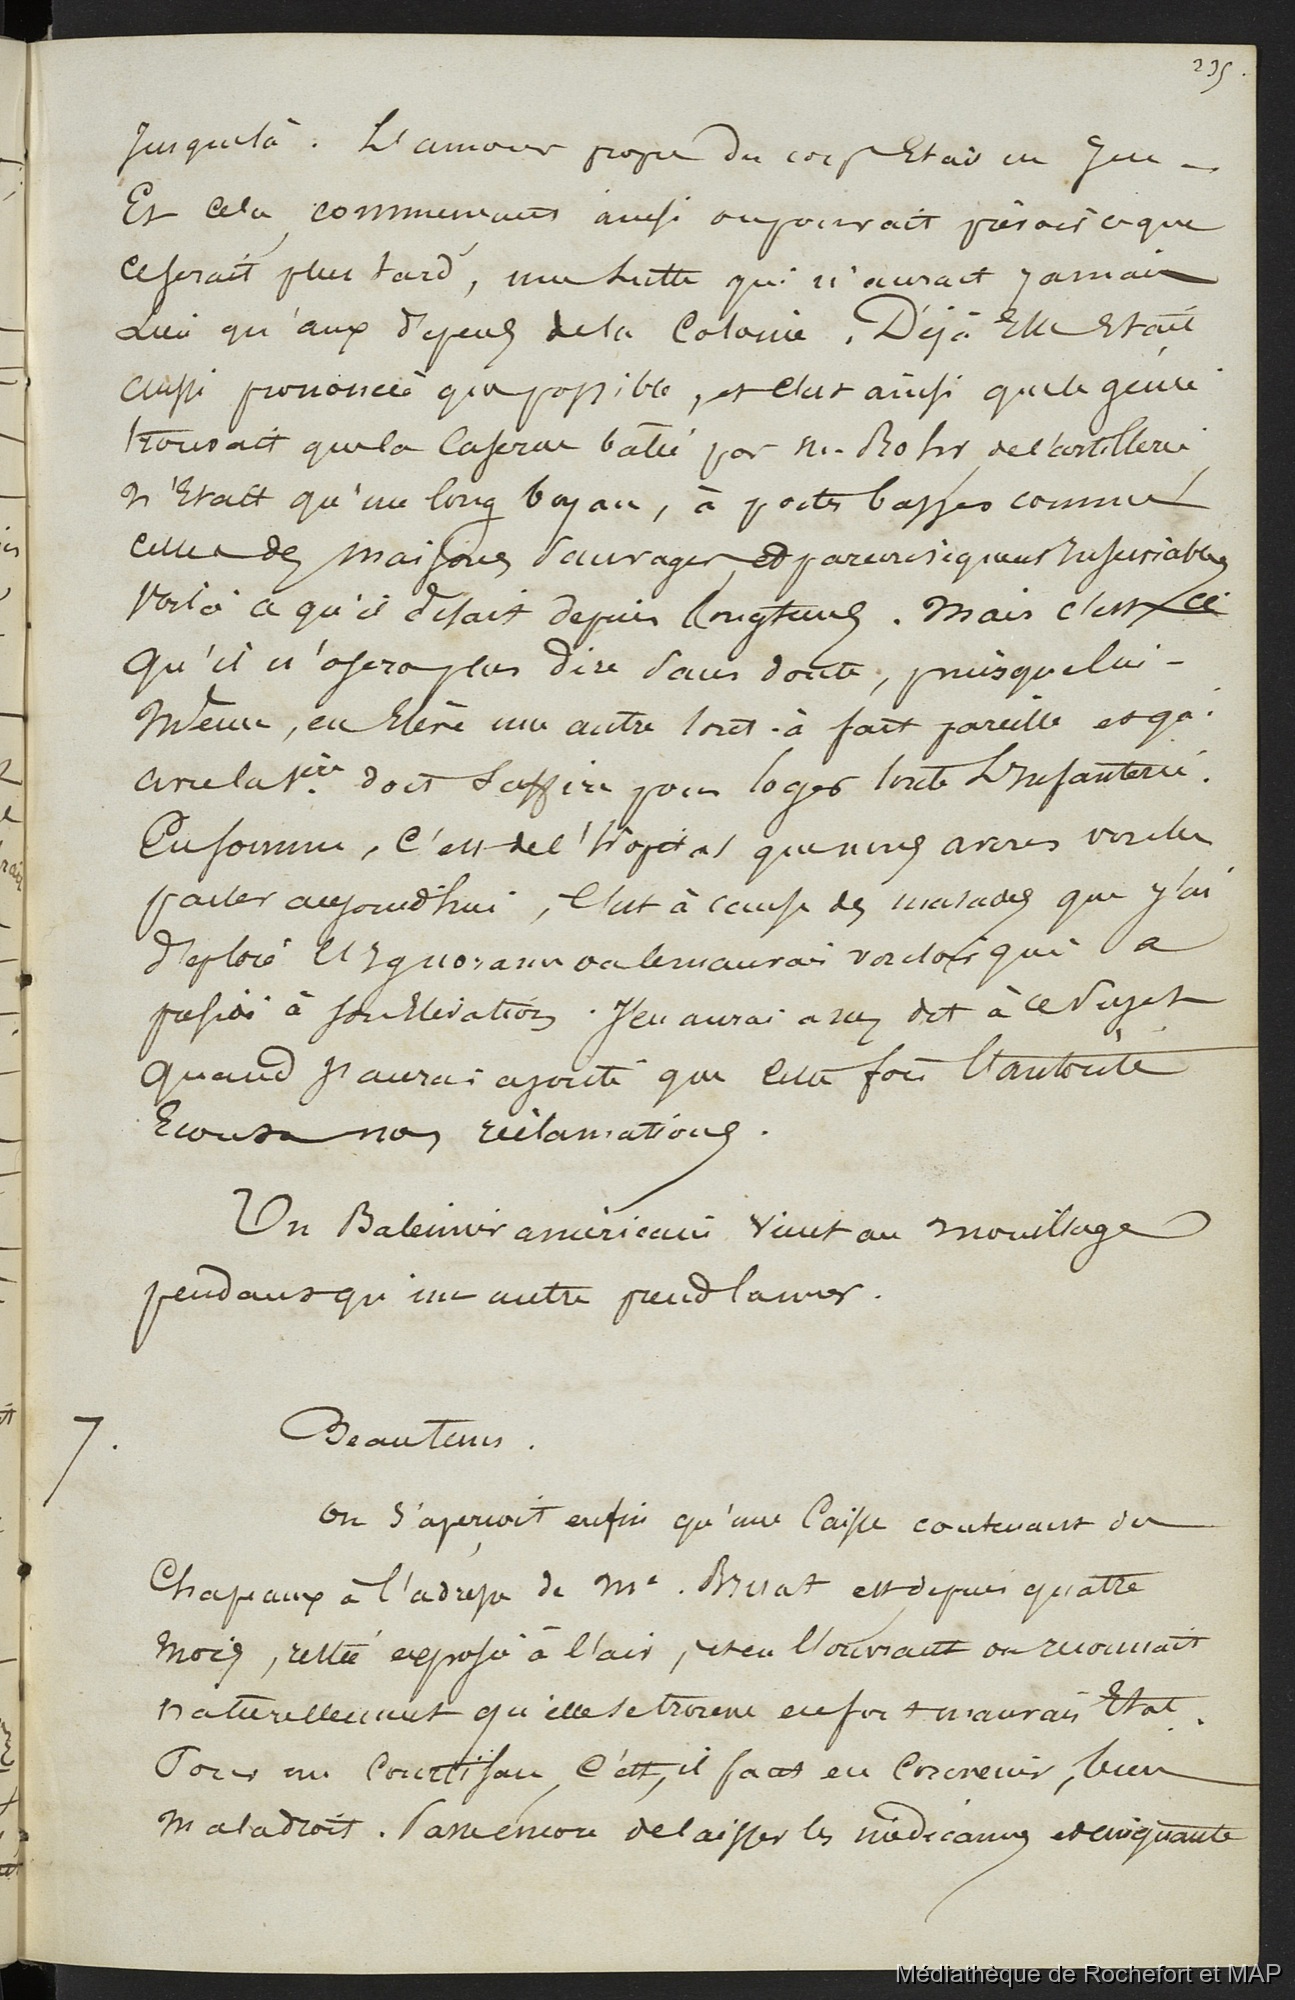 235.
Jusque là. L'amour propre du corps Etait en Jeu —
Et cela commençant ainsi on pouvait prévoir ce que
ce serait plus tard, une Lutte qui n'aurait jamais
Lieu qu'aux dépens de la Colonie. Déjà Elle Etait
aussi prononcée que possible, et c'est ainsi que le génie
trouvait que la Caserne batie par M. Rohr de l'artillerie
N'Etait qu'un long boyau, à portes basses comme
celles des maisons Sauvages, et par conséquent Insuriables
Voilà ce qu'il disait depuis longtems. Mais c'est ce
Qu'il n'osera plus dire Sans doute, puisque lui-
Même, en Elève une autre tout-à fait pareille et qui
avec la 1ière doit Suffire pour loger toute L'Infanterie.
En somme, C'est de l'hôpital que nous avons voulu
parler aujourd'hui, C'est à cause des malades que j'ai
déploré L'Ignorance ou le mauvais vouloir qui a
présidé à son Elévation. J'en aurai assez dit à ce Sujet
Quand J'aurai ajouté que cette fois L'autorité
Ecouta nos réclamations.
Un Baleinier américain vient au mouillage
pendant qu'un autre prend la mer.
7.
Beau tems.
on S'aperçoit enfin qu'une Caisse contenant des
Chapeaux à l'adresse de Me. Bruat est depuis quatre
Mois, restée exposée à l'air, et en l'ouvrant on reconnait
Naturellement qu'elle se trouve en fort mauvais Etat.
Pour un Courtisan, C'est, il faut en Convenir, bien
Maladroit. Passe encore de laisser les médicamens et cinquante
Médiathèque de Rochefort et MAP